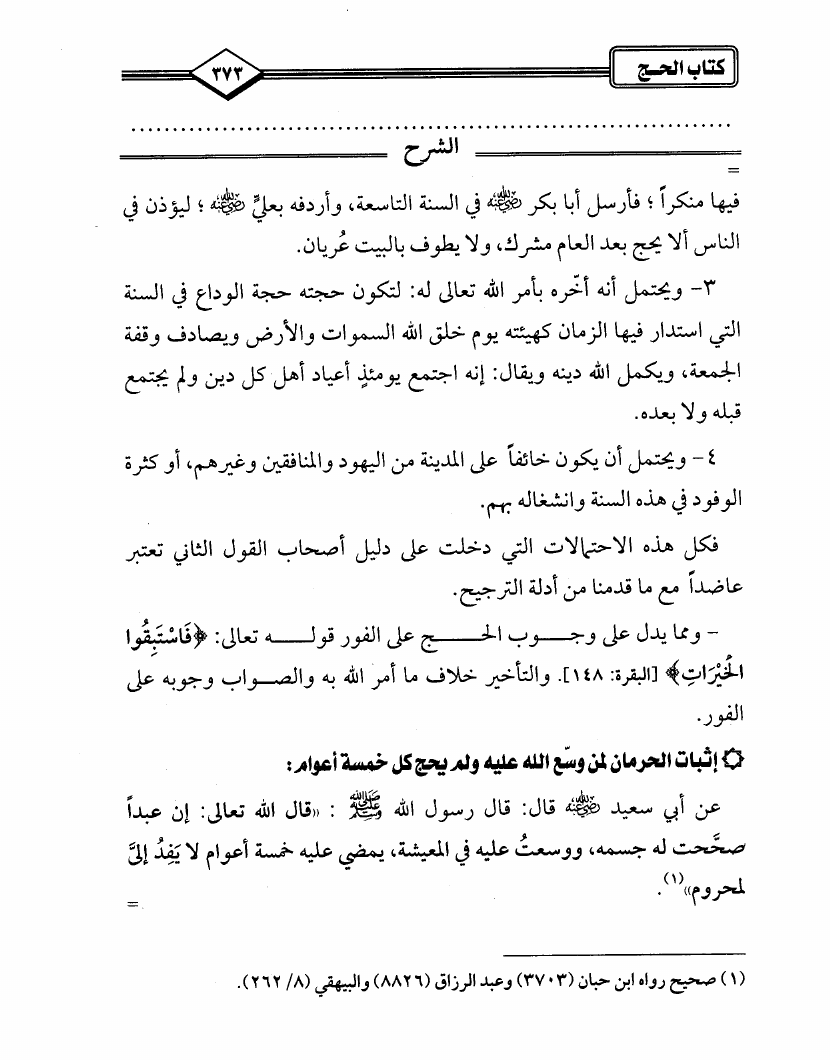 كتاب الحـج
٣٧٣
الشرح
=
فيها منكراً ؛ فأرسل أبا بكر ﷜ في السنة التاسعة، وأردفه بعليٍّ ﷜ ؛ ليؤذن في
الناس ألا يحج بعد العام مشرك، ولا يطوف بالبيت عُريان.
٣- ويحتمل أنه أخّره بأمر الله تعالى له: لتكون حجته حجة الوداع في السنة
التي استدار فيها الزمان كهيئته يوم خلق الله السموات والأرض ويصادف وقفة
الجمعة، ويكمل الله دينه ويقال: إنه اجتمع يومئذٍ أعياد أهل كل دين ولم يجتمع
قبله ولا بعده.
٤- ويحتمل أن يكون خائفاً على المدينة من اليهود والمنافقين وغيرهم، أو كثرة
الوفود في هذه السنة وانشغاله بهم.
فكل هذه الاحتمالات التي دخلت على دليل أصحاب القول الثاني تعتبر
عاضداً مع ما قدمنا من أدلة الترجيح.
- ومما يدل على وجـــوب الحـــج على الفور قولـــه تعالى: ﴿فَاسْتَبِقُوا
الْخَيْرَاتِ﴾ [البقرة: ١٤٨]. والتأخير خلاف ما أمر الله به والصواب وجوبه على
الفور.
۞ إثبات الحرمان لمن وسّع الله عليه ولم يحج كل خمسة أعوام:
عن أبي سعيد ﷜ قال: قال رسول الله ﷺ : «قال الله تعالى: إن عبداً
صحَّحت له جسمه، ووسعتُ عليه في المعيشة، يمضي عليه خمسة أعوام لا يَفِدُ إليَّ
لمحروم»(١).
=
(١) صحيح رواه ابن حبان (٣٧٠٣) وعبد الرزاق (٨٨٢٦) والبيهقي (٨/ ٢٦٢).